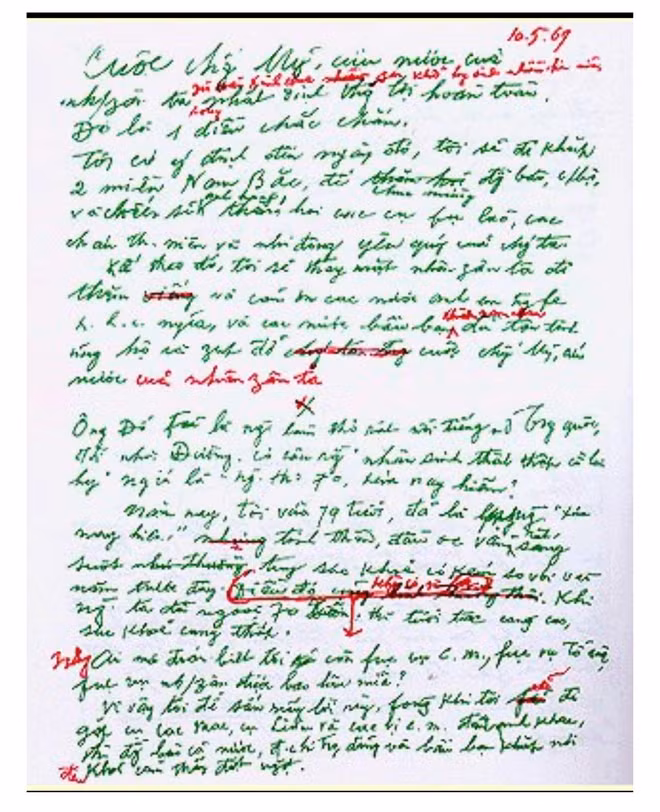 10.5.69
Cuộc chố' Mỹ, cứu nước của
zù fải kinh qua gian khổ hy sinh nhiều hơn nữa
nh/zân ta, song nhất định thắng lợi hoàn toàn.
Đó là 1 điều chắc chắn.
Tôi có ý định đến ngày đó, tôi sẽ đi khắp
2 miền Nam Bắc, để chúc mừng đg bào,
và chiến sĩ anh hùng thăm hỏi các cụ fụ lão, các
cháu th. niên và nhi đồng yêu quý của chg ta.
Kế theo đó, tôi sẽ thay mặt nhân zân ta đi
thăm và cảm ơn các nước anh em trg fe
x. h. c. nghĩa, và các nước bầu bạn khắp năm châu đã tận tình
ủng hộ và zúp đỡ cuộc chố' Mỹ, cứu
nước của nhân zân ta
X
Ông Đỗ Fủ là ng' làm thơ rất nổi tiếng ở Trg quốc,
đời nhà Đường. có câu rằng "nhân sinh thất thập cổ lai
hy" nghĩa là "ng' thọ 70, xưa nay hiếm".
Năm nay, tôi vừa 79 tuổi, đã là "xưa
nay hiếm" tinh thần, đầu óc vẫn sáng
suốt, sức khoẻ có kém so với vài
năm trước đây. Khi
ng' ta đã ngoài 70 xuân, thì tuổi tác càng cao,
sức khoẻ càng thấp.
Ai mà đoán biết tôi còn fục vụ c. m., fục vụ Tổ quốc,
fục vụ nh/zân được bao lâu nữa?
Vì vậy tôi để sẵn mấy lời này, fòng khi tôi đi
gặp cụ Các Mác, cụ Lênin và các vị c. m. đàn anh khác,
thì đg bào cả nước, đ.chí trg đảng và bầu bạn khắp nơi
đều khỏi cảm thấy đột ngột.